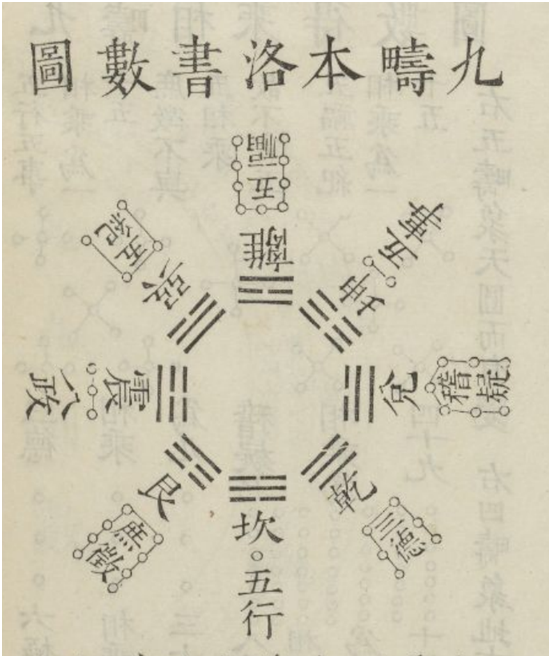 九疇本洛書數圖
離 五福
坤 五事
兌 稽疑
乾 三德
坎 五行
艮 庶徵
震 八政
巽 五紀